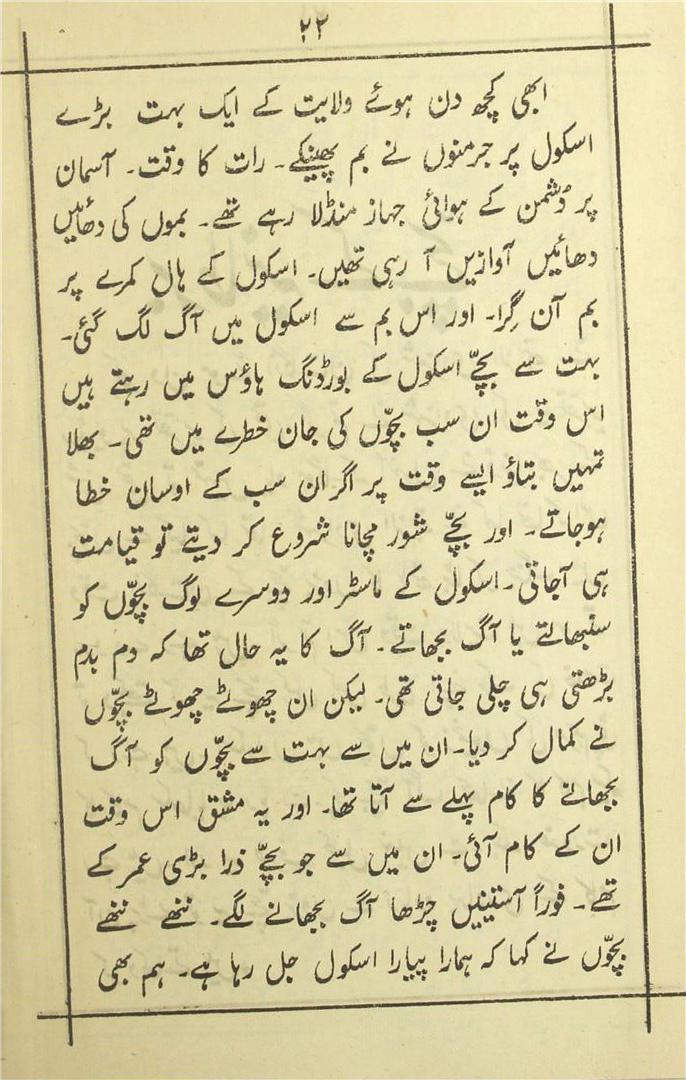 ۲۲
ابھی کچھ دن ہوئے ولایت کے ایک بہت بڑے
اسکول پر جرمنوں نے بم پھینکے۔ رات کا وقت۔ آسمان
پر دُشمن کے ہوائی جہاز منڈلا رہے تھے۔ بموں کی دھائیں
دھائیں آوازیں آ رہی تھیں۔ اسکول کے ہال کمرے پر
بم آن گِرا۔ اور اس بم سے اسکول میں آگ لگ گئی۔
بہت سے بچّے اسکول کے بورڈنگ ہاؤس میں رہتے ہیں
اس وقت ان سب بچّوں کی جان خطرے میں تھی۔ بھلا
تمہیں بتاؤ ایسے وقت پر اگر ان سب کے اوسان خطا
ہوجاتے۔ اور بچّے شور مچانا شروع کر دیتے تو قیامت
ہی آجاتی۔ اسکول کے ماسٹر اور دوسرے لوگ بچّوں کو
سنبھالتے یا آگ بجھاتے۔ آگ کا یہ حال تھا کہ دم بدم
بڑھتی ہی چلی جاتی تھی۔ لیکن ان چھوٹے چھوٹے بچّوں
نے کمال کر دیا۔ ان میں سے بہت سے بچّوں کو آگ
بجھانے کا کام پہلے سے آتا تھا۔ اور یہ مشق اس وقت
ان کے کام آئی۔ ان میں سے جو بچّے ذرا بڑی عمر کے
تھے۔ فوراً آستینیں چڑھا آگ بجھانے لگے۔ ننھے ننھے
بچّوں نے کہا کہ ہمارا پیارا اسکول جل رہا ہے۔ ہم بھی